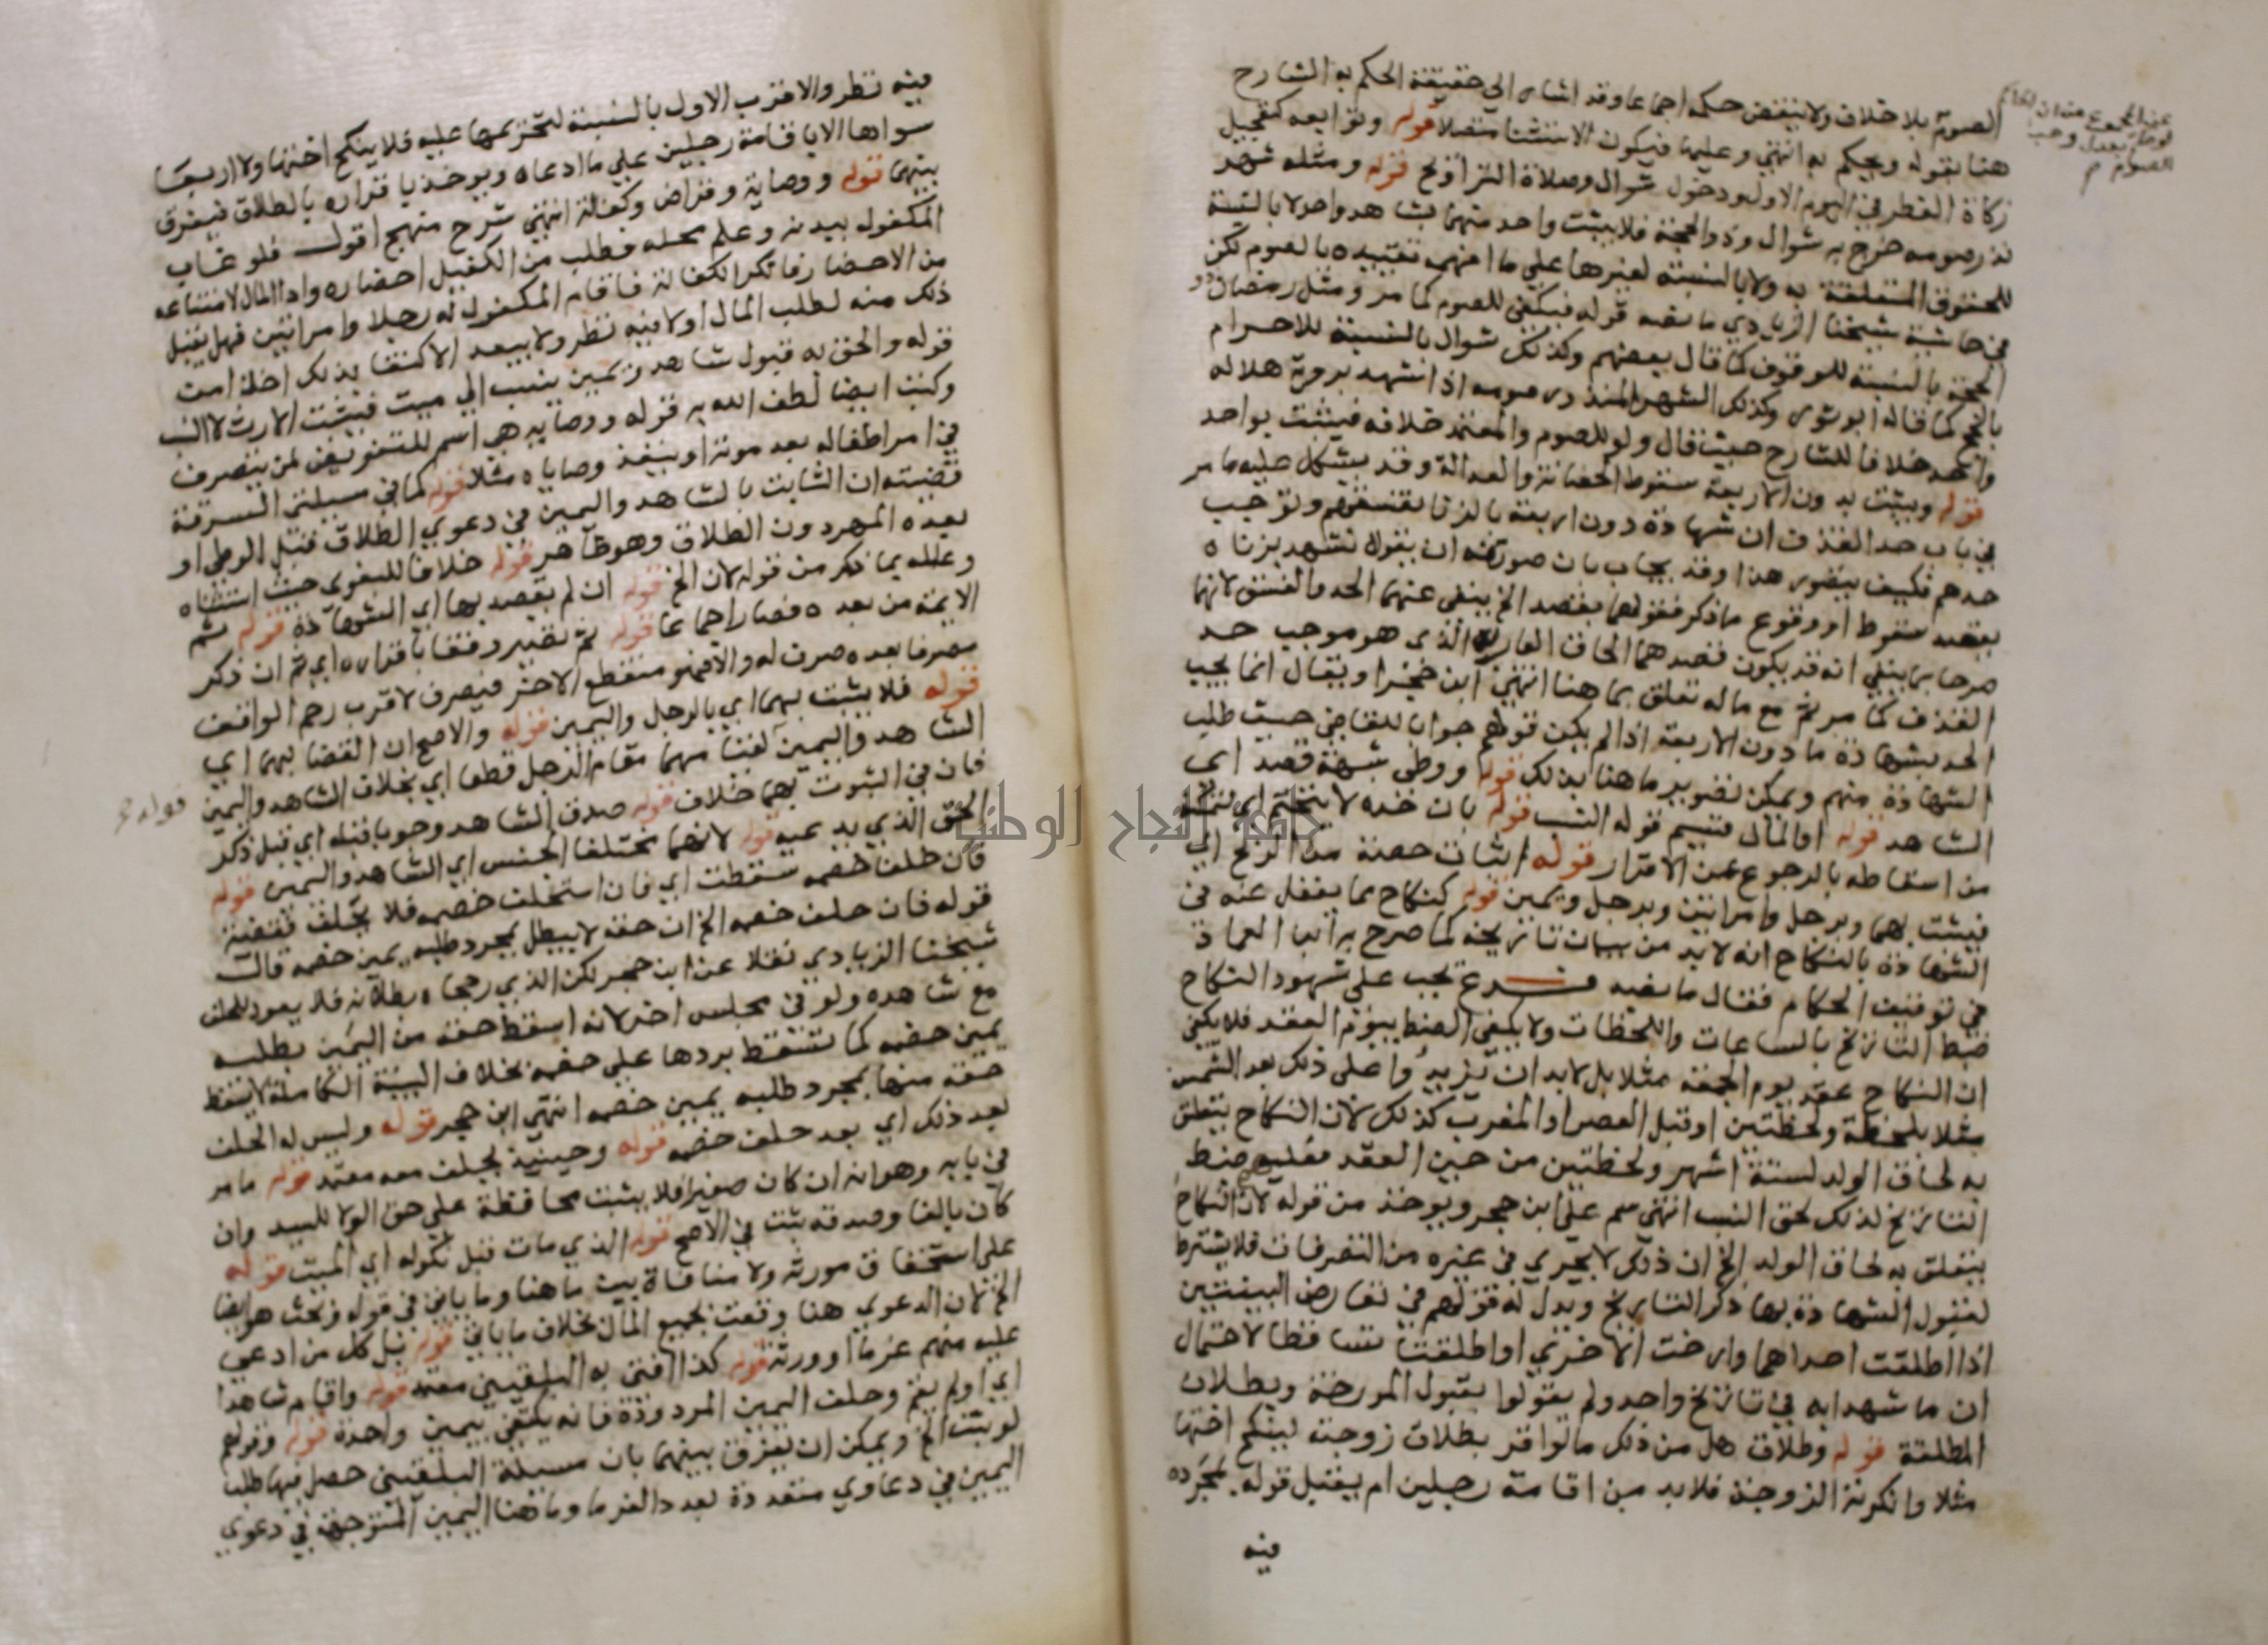 الصوم بلا خلاف ولا ينقض حكمه اجماعا وقد اشار الي حقيقة الحكم به الشارح
هنا بقوله ويحكم به انتهي وعليها فيكون الاستثنا متصلا قوله وتوابعه كتعجيل
زكاة الفطر في اليوم الاول ودخول شوال وصلاة التراويح قوله ومثله شهر
نذر صومه خرج به شوال وذو الحجة فلا يثبت واحد منهما بشاهد واحد لا بالنسبة
للحقوق المتعلقة به ولا بالنسبة لغيرها علي ما افهمه تقييده بالصوم لكن
في حاشية شيخنا الزيادي ما نصه قوله فيكفي للصوم كما مر ومثل رمضان ذو
الحجة بالنسبة للوقوف كما قال بعضهم وكذلك شوال بالنسبة للاحرام
بالحج كما قاله ابو شوى وكذلك الشهر المنذور صومه اذا شهد برؤية هلاله
واحد خلافا للشارح حيث قال ولو للصوم والمعتمد خلافه فيثبت بواحد
قوله ويثبت بدون الاربعة سقوط الحضانة والعدالة وقد يشكل عليه ما مر
في باب حد القذف ان شهادة دون اربعة بالزنا تفسقهم وتوجب
حدهم فكيف يتصور هذا وقد يجاب بان صورته ان يقولا نشهد بزناه
بقصد سقوط او وقوع ما ذكر فقولهما بقصد الخ ينفي عنهما الحد والفسق لانهما
صرحا بما ينفي انه قد يكون قصدهما الحاق العار به الذي هو موجب حد
القذف كما مر ثم مع ما له تعلق بما هنا انتهي ابن حجر او يقال انما يجب
الحد بشهادة ما دون الاربعة اذا لم يكن قولهم جوابا للقاضي حيث طلب
الشهادة منهم ويمكن تصوير ما هنا بذلك قوله ووطي شبهة قصد اي
الشاهد قوله او المال قسيم قوله النسب قوله بان حده لا يتحتم اي
من اسقاطه بالرجوع عن الاقرار قوله اثبات حصته من الربح اي
فيثبت بهما وبرجل وامراتين وبرجل ويمين قوله كنكاح مما يغفل عنه في
الشهادة بالنكاح انه لا بد من بيان تاريخه كما صرح به ابن العماد
في توقيف الحكام فقال ما نصه فرع يجب علي شهود النكاح
ضبط التاريخ بالساعات واللحظات ولا يكفي الضبط بيوم العقد فلا يكفي
ان النكاح عقد يوم الجمعة مثلا بل لا بد ان يزيدوا علي ذلك بعد الشمس
مثلا بلحظة ولحظتين او قبل العصر او المغرب كذلك لان النكاح يتعلق
به لحاق الولد لستة اشهر ولحظتين من حين العقد فعليهم ضبط
التاريخ لذلك لحق النسب انتهي سم علي ابن حجر ويوخذ من قوله لان النكاح
يتعلق به لحاق الولد الخ ان ذلك لا يجري في غيره من التصرفات فلا يشترط
لقبول الشهادة بها ذكر التاريخ ويدل له قولهم في تعارض البينتين
اذا اطلقت احداهما وارخت الاخري او اطلقتا تساقطا لاحتمال
ان ما شهدا به في تاريخ واحد ولم يقولوا بقبول المورخة وبطلان
المطلقة قوله وطلاق هل من ذلك ما لو اقر بطلاق زوجته لينكح اختها
مثلا وانكرته الزوجة فلا بد من اقامة رجلين ام يقبل قوله بمجرده
فيه
فيه نظر والاقرب الاول بالنسبة لتحريمها عليه فلا ينكح اختها ولا اربعا
سواها الا باقامة رجلين علي ما ادعاه ويوخذ باقراره بالطلاق فيفرق
بينهما قوله ووصاية وقراض وكفالة انتهي شرح منهج اقول فلو غاب
المكفول ببدنه وعلم محله فطلب من الكفيل احضاره وادا المال لامتناعه
من الاحضار فانكر الكفالة فاقام المكفول له رجلا وامراتين فهل يقبل
ذلك منه لطلب المال اولا فيه نظر ولا يبعد الاكتفا بذلك اخذا من
قوله والحق به قبول شاهد ويمين بنسب الي ميت فيثبت الارث لا النسب
وكتب ايضا لطف الله به قوله ووصايه هي اسم للتفويض لمن يتصرف
في امر اطفاله بعد موته او ينفذ وصاياه مثلا قوله كما في مسيلتي السرقة
قضيته ان الثابت بالشاهد واليمين في دعوي الطلاق قبل الوطي او
بعده المهر دون الطلاق وهو ظاهر قوله خلافا للبغوي حيث استثناه
وعلله بما ذكر من قوله لان الخ قوله ان لم يقصد بها اي الشهادة قوله ثم
الايمة من بعده فصار اجماعا قوله ثم تصير وقفا باقراره اي ثم ان ذكر
مصرفا بعده صرف له والا فهو منقطع الاخر فيصرف لاقرب رحم الواقف
قوله فلا يثبت بهما اي بالرجل واليمين قوله والاصح ان القضا بهما اي
الشاهد واليمين لفنا مهما مقام الرجل قطعا اي بخلاف الشاهد واليمين
فان في الثبوت بهما خلاف قوله صدق الشاهد وجوبا قبله اي قبل ذكر
الحق الذي يدعيه قوله لانهما مختلفا الجنس اي الشاهد واليمين قوله
فان حلف خصمه سقطت اي فان استحلف خصمه فلا يحلف فقضية
قوله فان حلف خصمه الخ ان حقه لا يبطل بمجرد طلبه يمين خصمه قال
شيخنا الزيادي نقلا عن ابن حجر لكن الذي رجحاه بطلانه فلا يعود للحلف
مع شاهده ولو في مجلس اخر لانه اسقط حقه من اليمين بطلبه
يمين خصمه كما تسقط بردها علي خصمه بخلاف البينة الكاملة لا يسقط
حقه منها بمجرد طلبه يمين خصمه انتهي ابن حجر قوله وليس له الحلف
بعد ذلك اي بعد حلف خصمه قوله وحينيذ يحلف معه معتمد قوله ما مر
في بابه وهو انه ان كان صغيرا فلا يثبت محافظة علي حق الولا للسيد وان
كان بالغا وصدقه ثبت في الاصح قوله الذي مات قبل نكوله اي الميت قوله
علي استحقاق مورثه ولا منافاة بين ما هنا وما ياتي في قوله وبحث هو ايضا
الخ لان الدعوي هنا وقعت بجميع المال بخلاف ما ياتي قوله قبل كل من ادعي
عليه منهم غرما او ورثة قوله كذا افتي به البلقيني معتمد قوله واقام شاهدا
اي او لم يقم وحلف اليمين المردودة فانه يكتفي بيمين واحدة قوله وقولهم
لو ثبت الخ ويمكن ان يفرق بينهما بان مسيلة البلقيني حصل فيها طلب
اليمين في دعاوي متعددة بعدد الغرما وما هنا اليمين المتوجهة في دعوي
جامعة النجاح الوطنية